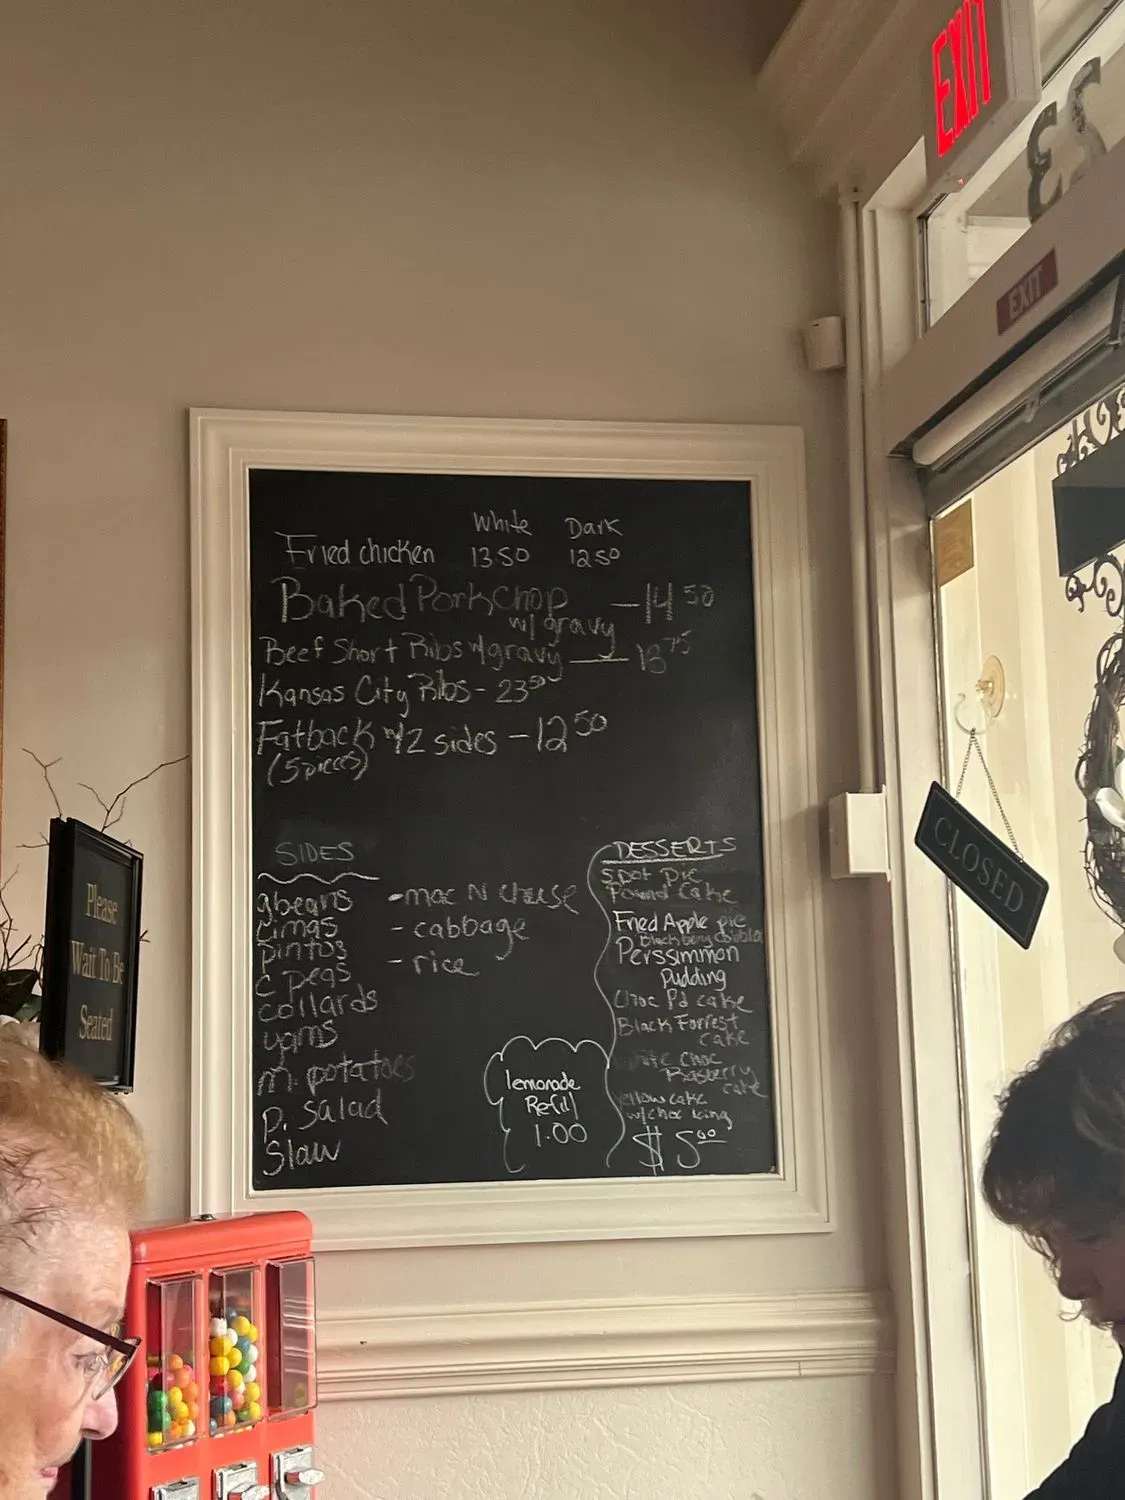 EXIT
23
EXIT
White Dark
Fried chicken 13.50 12.50
Baked Pork chop — 14 50
w/ gravy
Beef Short Ribs w/gravy —
Kansas City Ribs - 23 50
Fatback w/2 sides - 12 50
(5 pieces)
SIDES
gbeans
Limas
pintos
c peas
collards
yams
m. potatoes
p. salad
Slaw
- mac N cheese
- cabbage
- rice
lemonade
Refill
1.00
DESSERTS
Spot pie
Pound Cake
Fried Apple pie
Blackberry
Perssimmon
Pudding
Choc Pd cake
Black Forrest
cake
white choc
Rasberry
cake
yellow cake
w/choc icing
$ 5.00
Please
Wait To Be
Seated
CLOSED